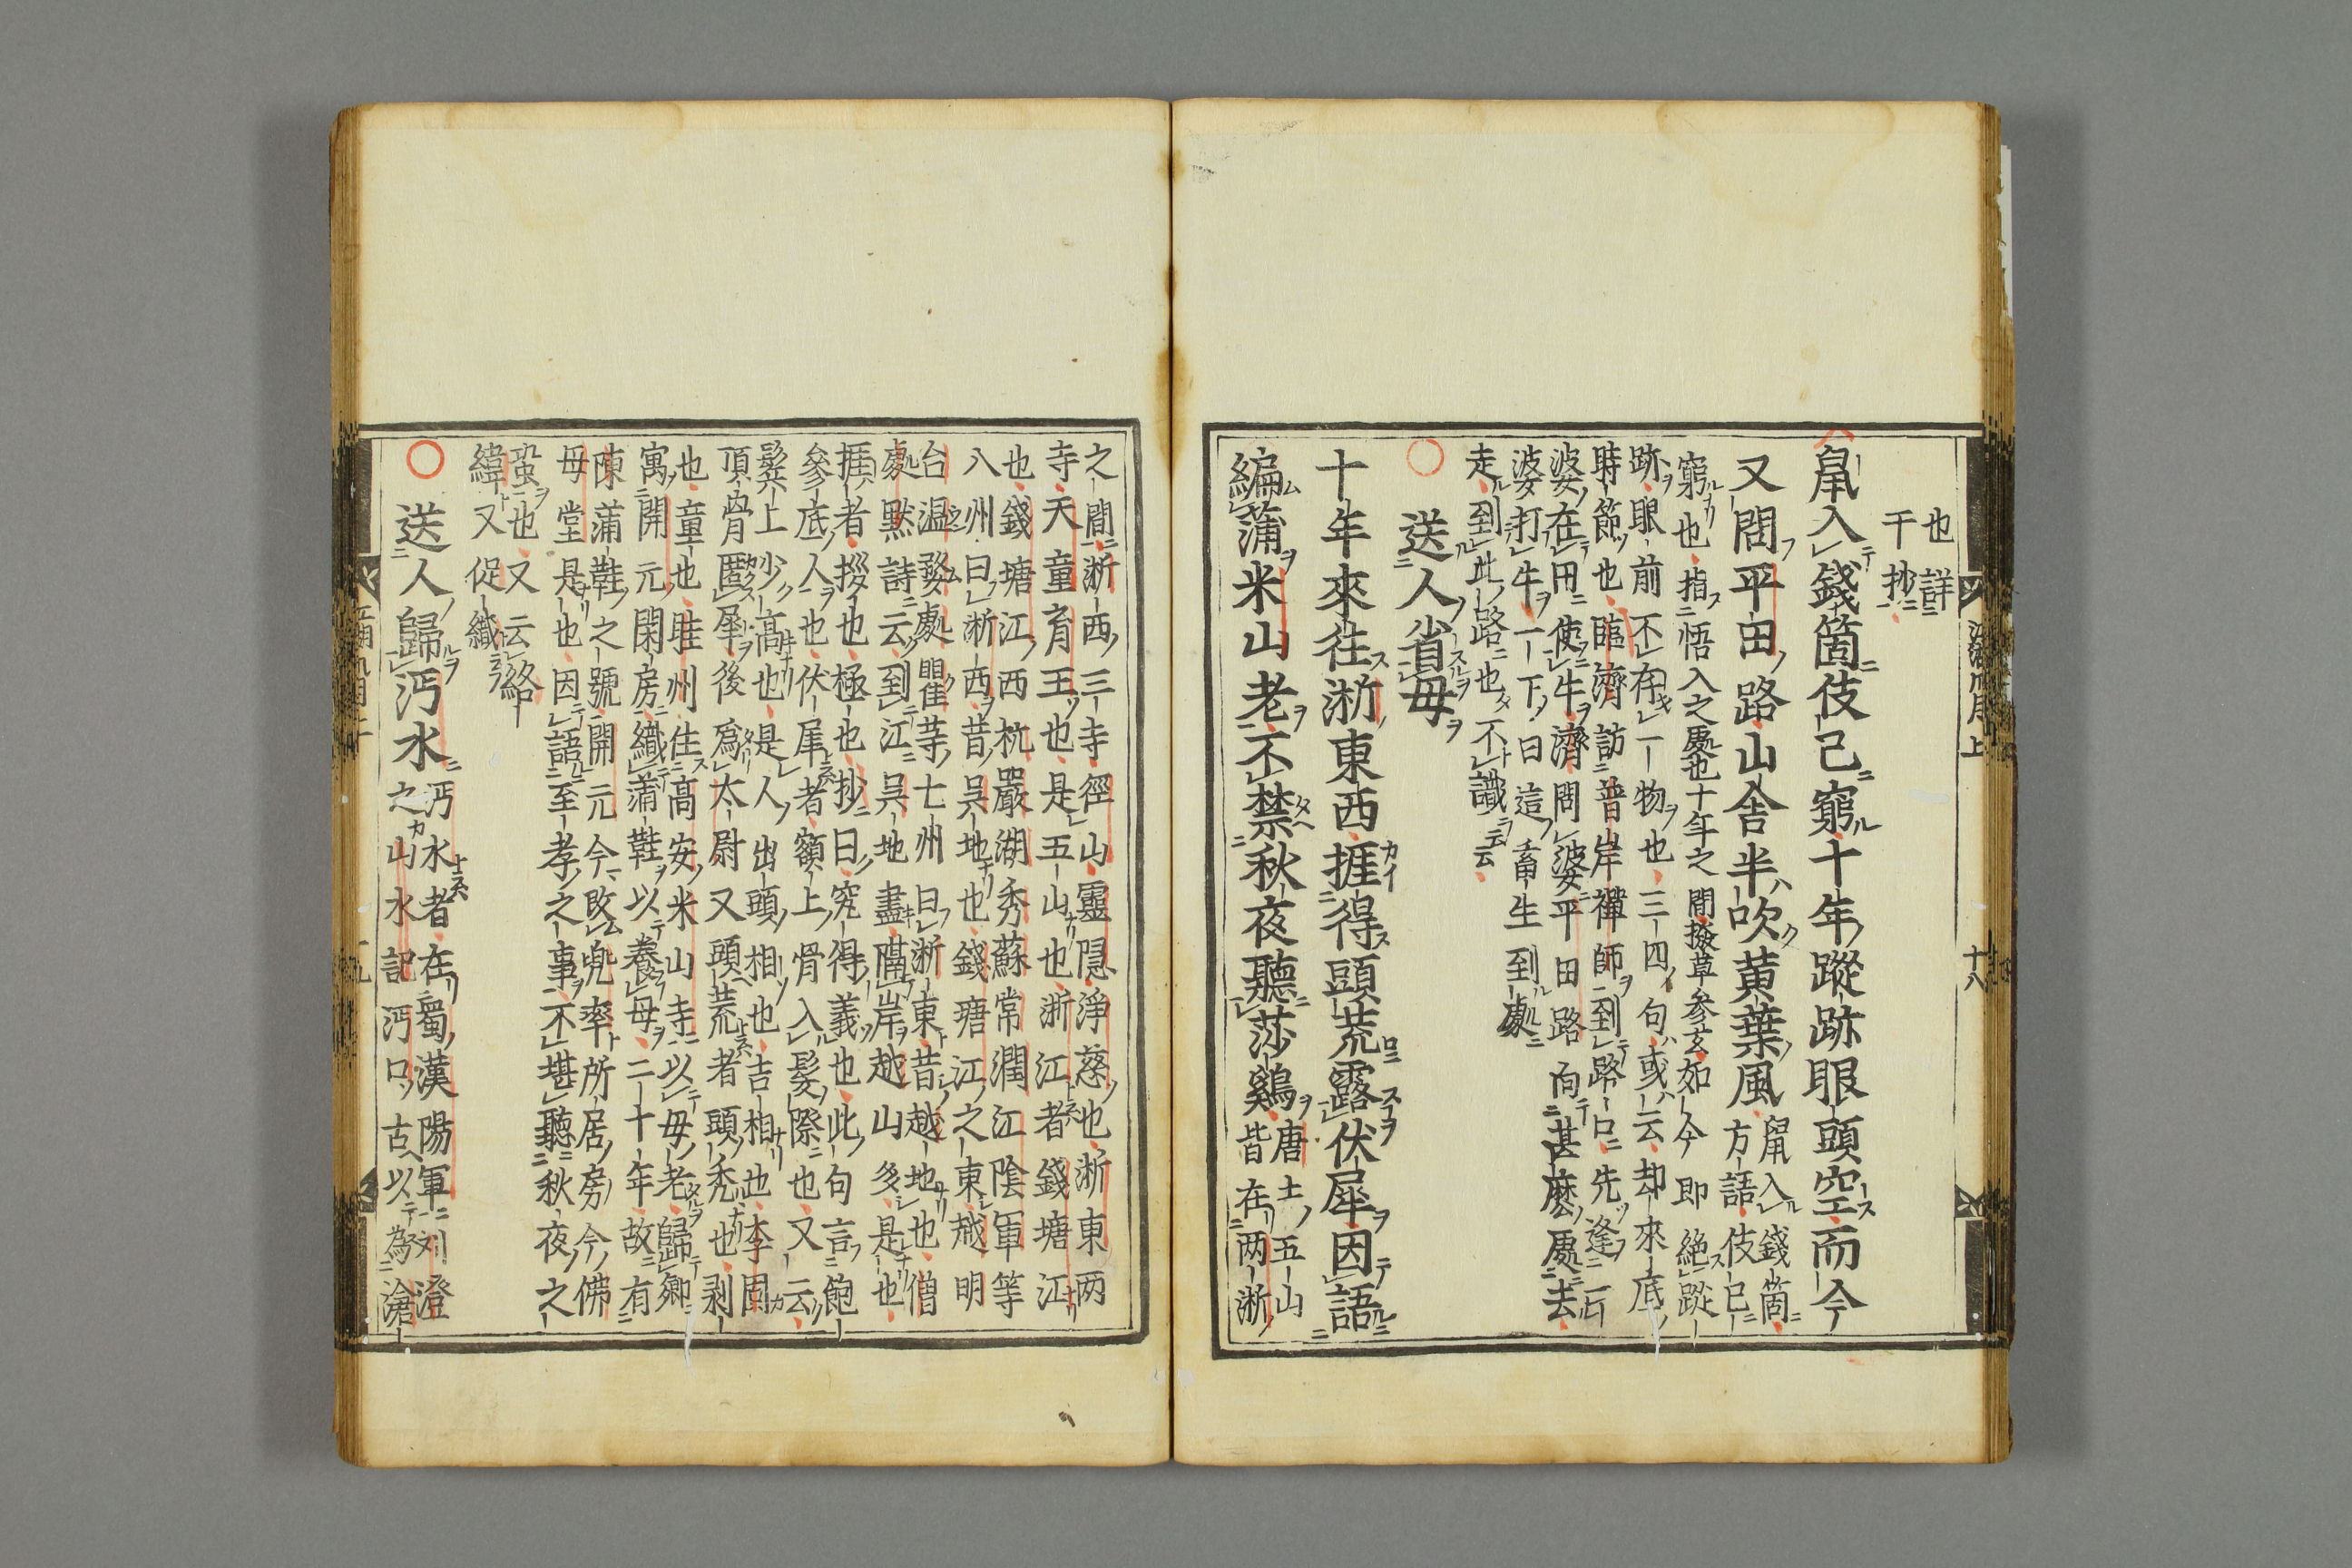 也詳
干抄
鼠入錢箇伎已窮十年蹤跡眼頭空而今
又問平田路山舍半吹黄葉風
鼠入錢箇
方語伎已
窮也指悟入之處也十年之間撥草参玄如今即絶蹤
跡眼前不存一物也三四句或云却來底
時節也臨濟訪普岸禅師到路口先逢一
婆在田使牛濟問婆平田路向甚麽處去
婆打牛一下曰這畜生到處
走到此路也不識云云
送人省母
十年來往浙東西捱得頭荒露伏犀因語
編蒲米山老不禁秋夜聽莎鷄
唐土五山
皆在两浙
十八
之間浙西三寺徑山靈隠淨慈也浙東两
寺天童育王也是五山也浙江者錢塘江
也錢塘江西杭嚴湖秀蘇常潤江陰軍等
八州曰浙西昔吳地也錢塘江之東越明
台温婺處瞿等七州曰浙東昔越地也僧
處黙詩云到江吳地盡隔岸越山多是也
捱者拶也極也抄曰究得義也此句言飽
參底人也伏犀者額上骨入髮際也又云
鬂上少高也是人出頭相也吉相也李固
頂骨匿犀後為太尉又頭荒者頭秃也剥
也童也睦州住高安米山寺以母老歸卿
寓開元閑房織蒲鞋以養母二十年故有
陳蒲鞋之號開元今改兜率所居房今佛
母堂是也因語至孝之事不堪聽秋夜之
蛩也又云絡
緯又促織
送人歸沔水
沔水者在蜀漢陽軍刘澄
之山水記沔口古以為滄